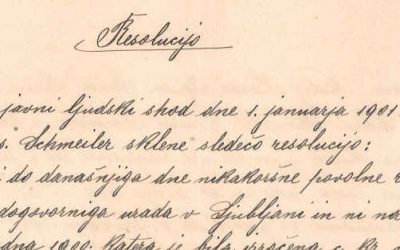 Resolucijo
javni ljudski shod dne 1. januarja 1901
s. Schmeiler sklene sledečo resolucijo:
i do današnjiga dne nikakoršne povolne
dogovorniga urada v Ljubljani in ni
1900. katera je bila izročena c. kr.